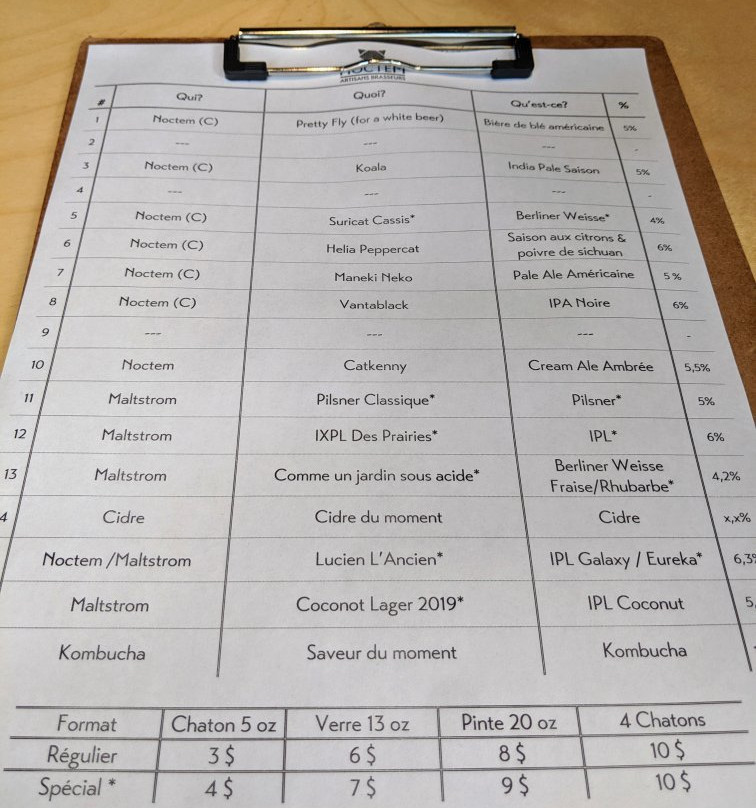 NOCTEM
ARTISANS BRASSEURS
# Qui? Quoi? Qu'est-ce? %
1 Noctem (C) Pretty Fly (for a white beer) Bière de blé américaine 5%
2 --- --- --- -
3 Noctem (C) Koala India Pale Saison 5%
4 --- --- --- -
5 Noctem (C) Suricat Cassis* Berliner Weisse* 4%
6 Noctem (C) Helia Peppercat Saison aux citrons & poivre de sichuan 6%
7 Noctem (C) Maneki Neko Pale Ale Américaine 5%
8 Noctem (C) Vantablack IPA Noire 6%
9 --- --- --- -
10 Noctem Catkenny Cream Ale Ambrée 5,5%
11 Maltstrom Pilsner Classique* Pilsner* 5%
12 Maltstrom IXPL Des Prairies* IPL* 6%
13 Maltstrom Comme un jardin sous acide* Berliner Weisse Fraise/Rhubarbe* 4,2%
4 Cidre Cidre du moment Cidre x,x%
Noctem /Maltstrom Lucien L'Ancien* IPL Galaxy / Eureka* 6,3%
Maltstrom Coconot Lager 2019* IPL Coconut 5,
Kombucha Saveur du moment Kombucha
Format Chaton 5 oz Verre 13 oz Pinte 20 oz 4 Chatons
Régulier 3 $ 6 $ 8 $ 10 $
Spécial * 4 $ 7 $ 9 $ 10 $